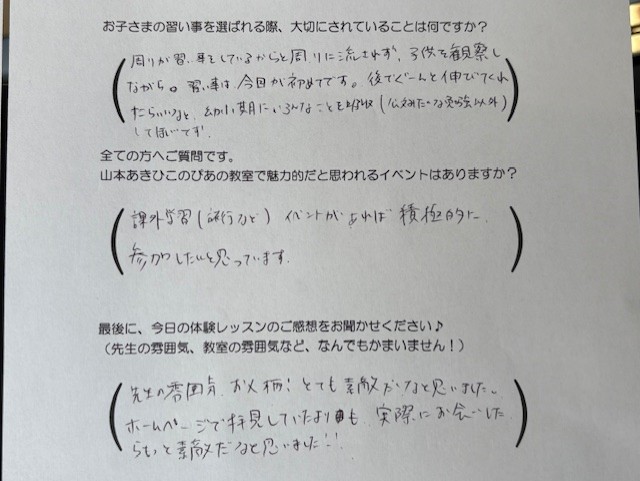 お子さまの習い事を選ばれる際、大切にされていることは何ですか？
周りが習い事をしているからと周りに流されず、子供を観察し
ながら。習い事は今回が初めてです。後でぐーんと伸びてくれ
たらいいなと、幼小期にいろんなことを吸収(公文みたいな勉強以外)
してほしいです。
全ての方へご質問です。
山本あきひこのぴあの教室で魅力的だと思われるイベントはありますか？
課外学習(旅行など) イベントがあれば積極的に
参加したいと思っています。
最後に、今日の体験レッスンのご感想をお聞かせください♪
（先生の雰囲気、教室の雰囲気など、なんでもかまいません！）
先生の雰囲気、お人柄！とても素敵だなと思いました。
ホームページで拝見していたよりも、実際にお会いした
らもっと素敵だなと思いました!!